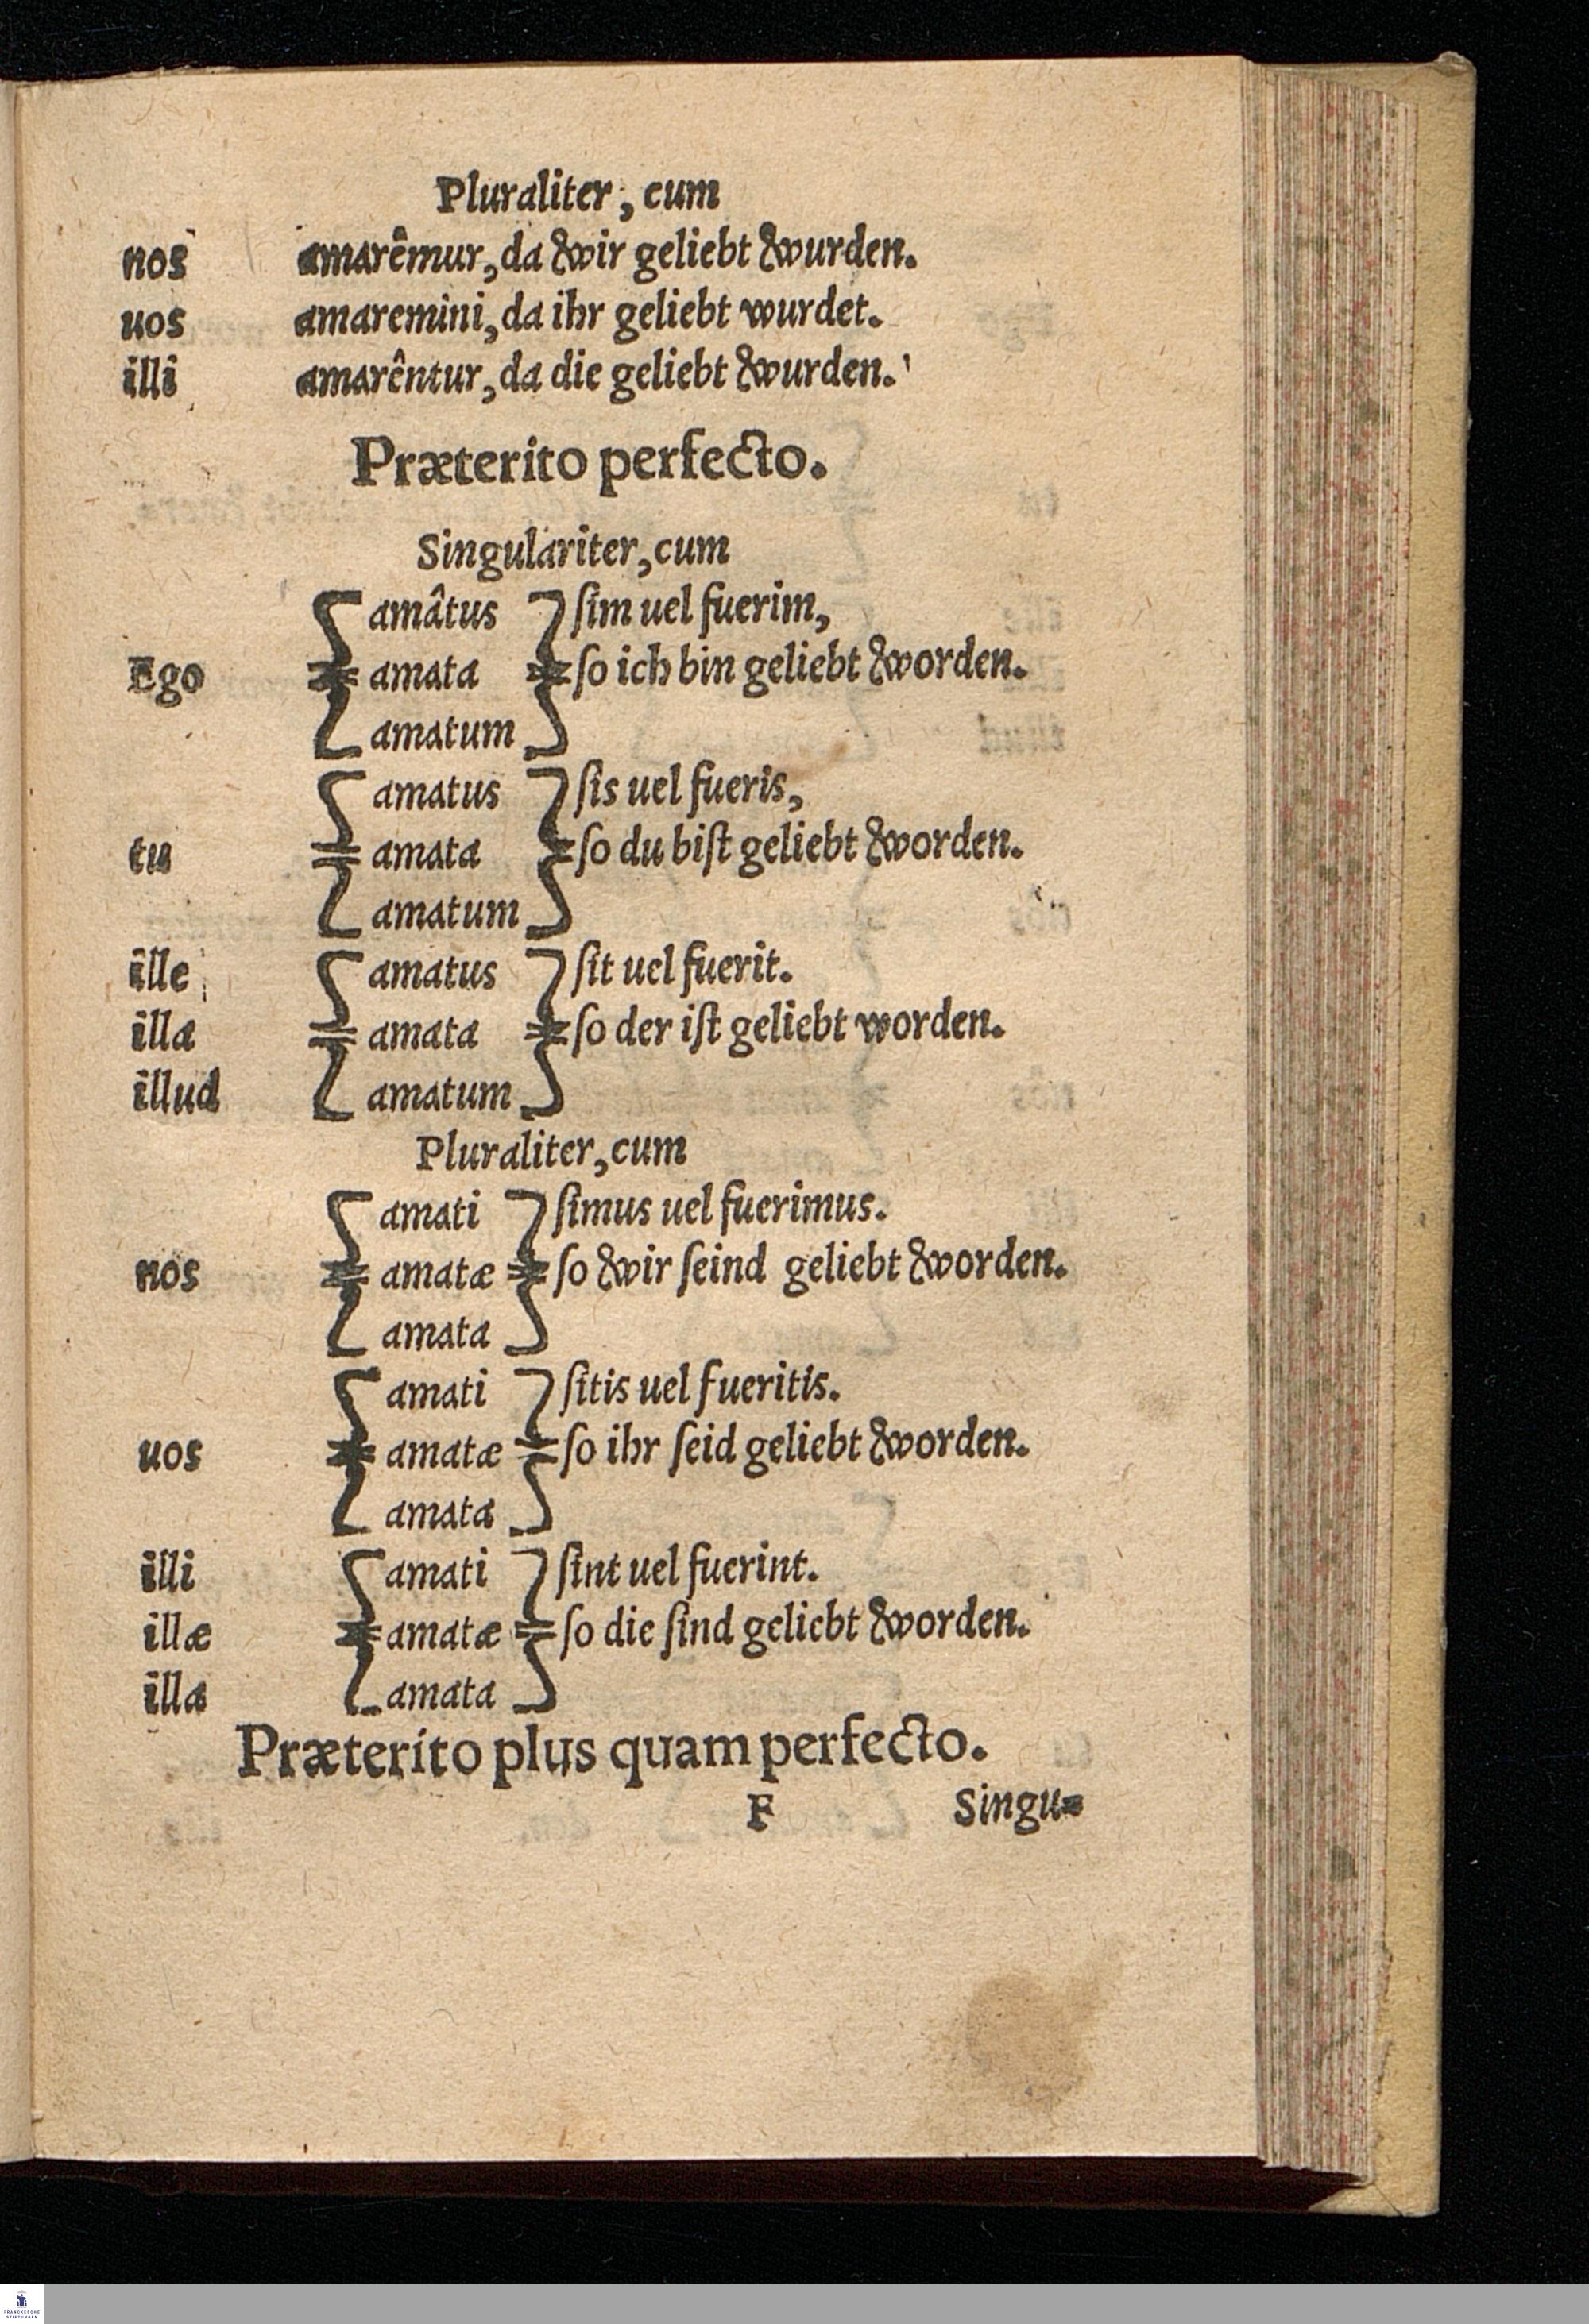 Pluraliter, cum
nos amarêmur, da wir geliebt wurden.
uos amaremini, da ihr geliebt wurdet.
illi amarêntur, da die geliebt wurden.
Præterito perfecto.
Singulariter, cum
amâtus ſim uel fuerim,
Ego amata ſo ich bin geliebt worden.
amatum
amatus ſis uel fueris,
tu amata ſo du biſt geliebt worden.
amatum
ille amatus ſit uel fuerit.
illa amata ſo der iſt geliebt worden.
illud amatum
Pluraliter, cum
amati ſimus uel fuerimus.
nos amatæ ſo wir ſeind geliebt worden.
amata
amati ſitis uel fueritis.
uos amatæ ſo ihr ſeid geliebt worden.
amata
illi amati ſint uel fuerint.
illæ amatæ ſo die ſind geliebt worden.
illa amata
Præterito plus quam perfecto.
F Singu=
FRANCKESCHE
STIFTUNGEN